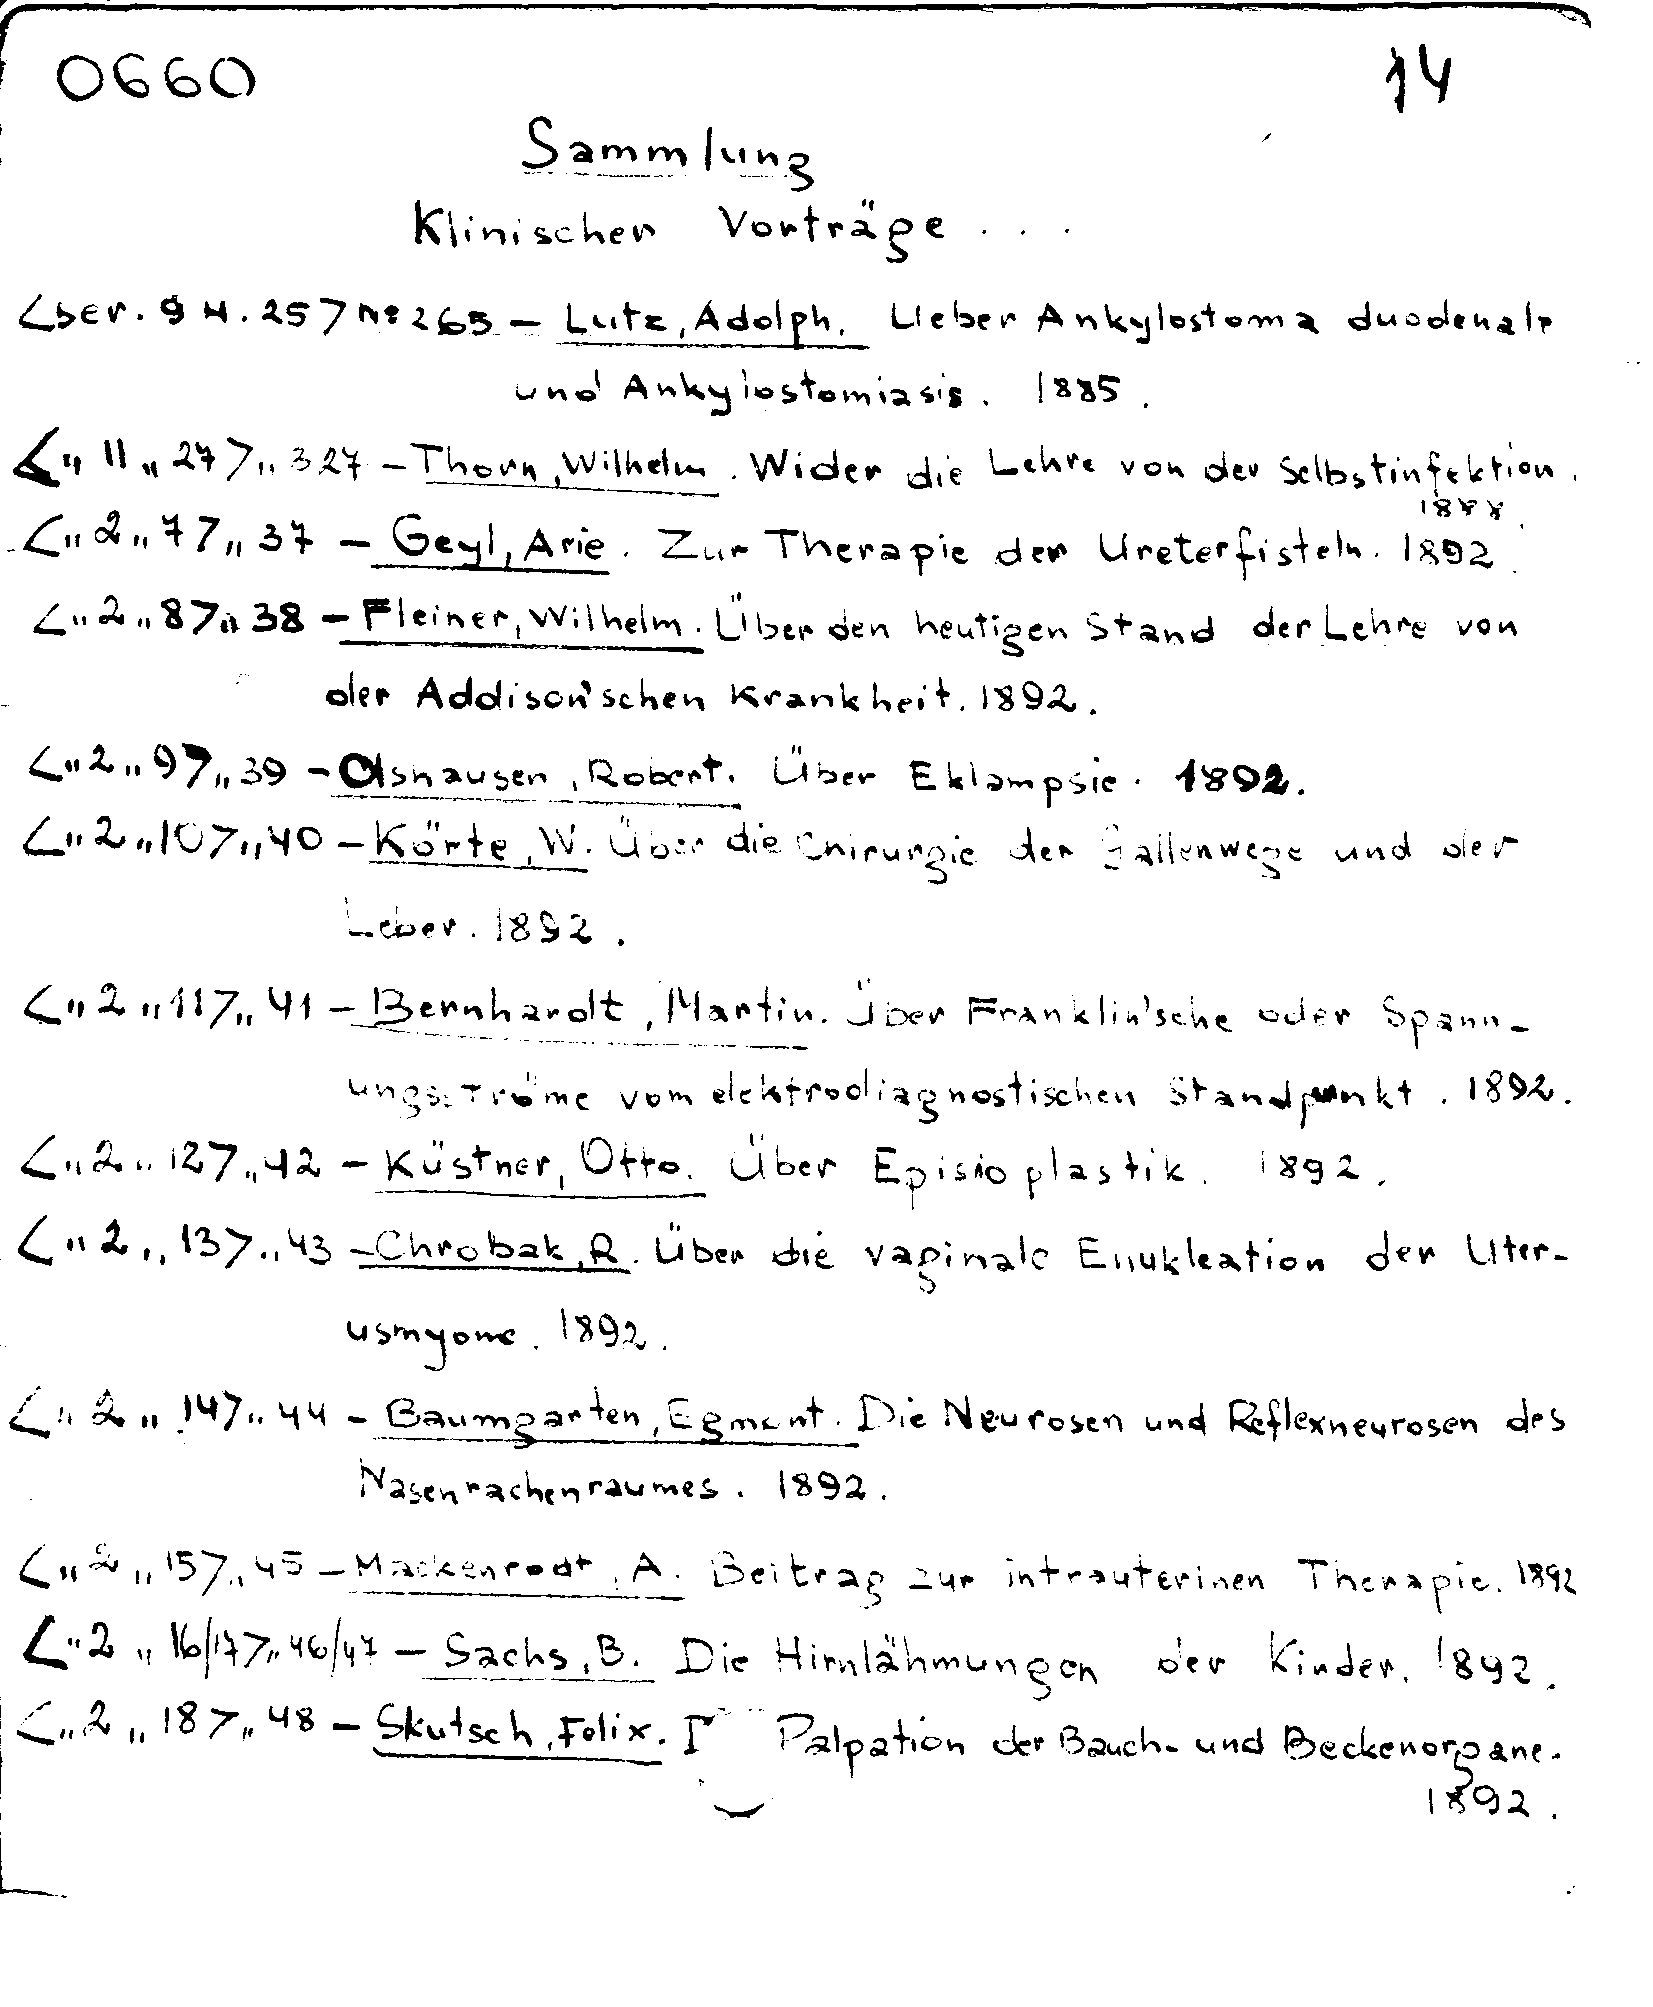 0660 14
Sammlung
Klinischer Vorträge . . .
<ser. 9 H. 25> Nº 265 – Lutz, Adolph. Ueber Ankylostoma duodenale
und Ankylostomiasis. 1885.
<„ 11 „ 27> „ 327 – Thorn, Wilhelm. Wider die Lehre von der Selbstinfektion.
1888.
<„ 2 „ 7> „ 37 – Geyl, Arie. Zur Therapie der Ureterfisteln. 1892.
<„ 2 „ 8> „ 38 – Fleiner, Wilhelm. Über den heutigen Stand der Lehre von
der Addison'schen Krankheit. 1892.
<„ 2 „ 9> „ 39 – Olshausen, Robert. Über Eklampsie. 1892.
<„ 2 „ 10> „ 40 – Körte, W. Über die Chirurgie der Gallenwege und der
Leber. 1892.
<„ 2 „ 11> „ 41 – Bernhardt, Martin. Über Franklin'sche oder Spann-
ungsströme vom elektrodiagnostischen Standpunkt. 1892.
<„ 2 „ 12> „ 42 – Küstner, Otto. Über Episioplastik. 1892.
<„ 2 „ 13> „ 43 – Chrobak, R. Über die vaginale Enukleation der Uter-
usmyome. 1892.
<„ 2 „ 14> „ 44 – Baumgarten, Egmont. Die Neurosen und Reflexneurosen des
Nasenrachenraumes. 1892.
<„ 2 „ 15> „ 45 – Mackenrodt, A. Beitrag zur intrauterinen Therapie. 1892
<„ 2 „ 16/17> „ 46/47 – Sachs, B. Die Hirnlähmungen der Kinder. 1892.
<„ 2 „ 18> „ 48 – Skutsch, Felix. Palpation der Bauch- und Beckenorgane.
1892.